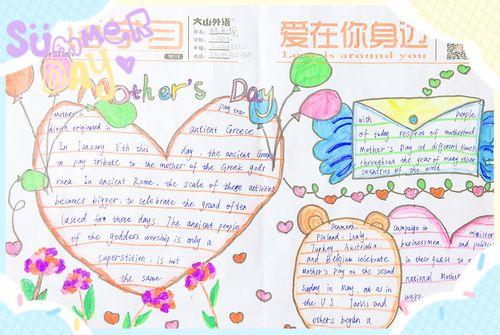 SUMMER
DAY
习
大山外语
姓名:
学校:
爱在你身边
Love is around you
Mother's Day
Mother's Day tra-
dition originated in ancient Greece.
In January 8th this day, the ancient Greeks
to pay tribute to the mother of the Greek gods
rhea. In ancient Rome, the scale of these activities
becomes bigger, to celebrate the grand often
lasted for three days. The ancient people
of the goddess worship is only a
superstition, is not
the same
with people
of today respect of motherhood.
Mother's Day at different times
throughout the year of many other
countries of the world.
Denmark,
Finland, Italy,
Turkey, Australia
and Belgium celebrate
Mother's Day on the second
Sunday in May, as in
the U.S. Jarvis and
others began a
Campaign to minister
businessmen, and politici
in their quest to e
national Mother
were